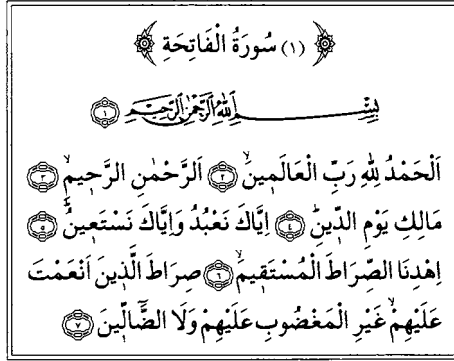 ﴿ (١) سُورَةُ الْفَاتِحَةِ ﴾
بِسْمِ اللّٰهِ الرَّحْمٰنِ الرَّحِيمِ ﴿١﴾
اَلْحَمْدُ لِلّٰهِ رَبِّ الْعَالَمٖينَۙ ﴿٢﴾ اَلرَّحْمٰنِ الرَّحٖيمِۙ ﴿٣﴾
مَالِكِ يَوْمِ الدّٖينِۜ ﴿٤﴾ اِيَّاكَ نَعْبُدُ وَاِيَّاكَ نَسْتَعٖينُۜ ﴿٥﴾
اِهْدِنَا الصِّرَاطَ الْمُسْتَقٖيمَۙ ﴿٦﴾ صِرَاطَ الَّذٖينَ اَنْعَمْتَ
عَلَيْهِمْۙ غَيْرِ الْمَغْضُوبِ عَلَيْهِمْ وَلَا الضَّٓالّٖينَ ﴿٧﴾